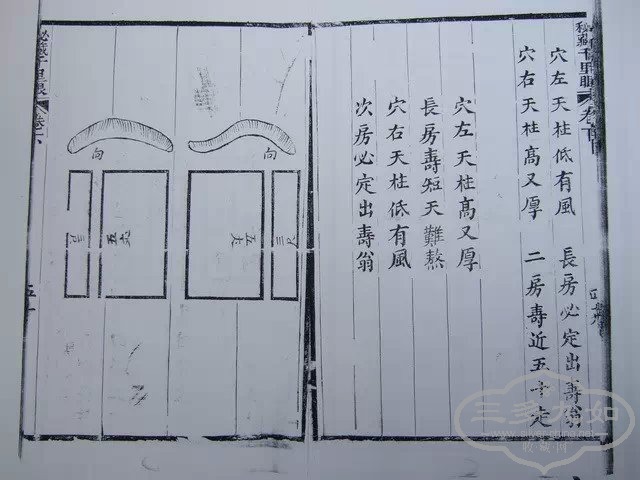 秘藏千里眼
穴左天柱低有風 長房必定出壽翁
穴右天柱髙又厚 二房壽近五十定
穴左天柱髙又厚
長房壽短天難熬
穴右天柱低有風
次房必定出壽翁
向
三尺
五尺
向
三尺
三多九如